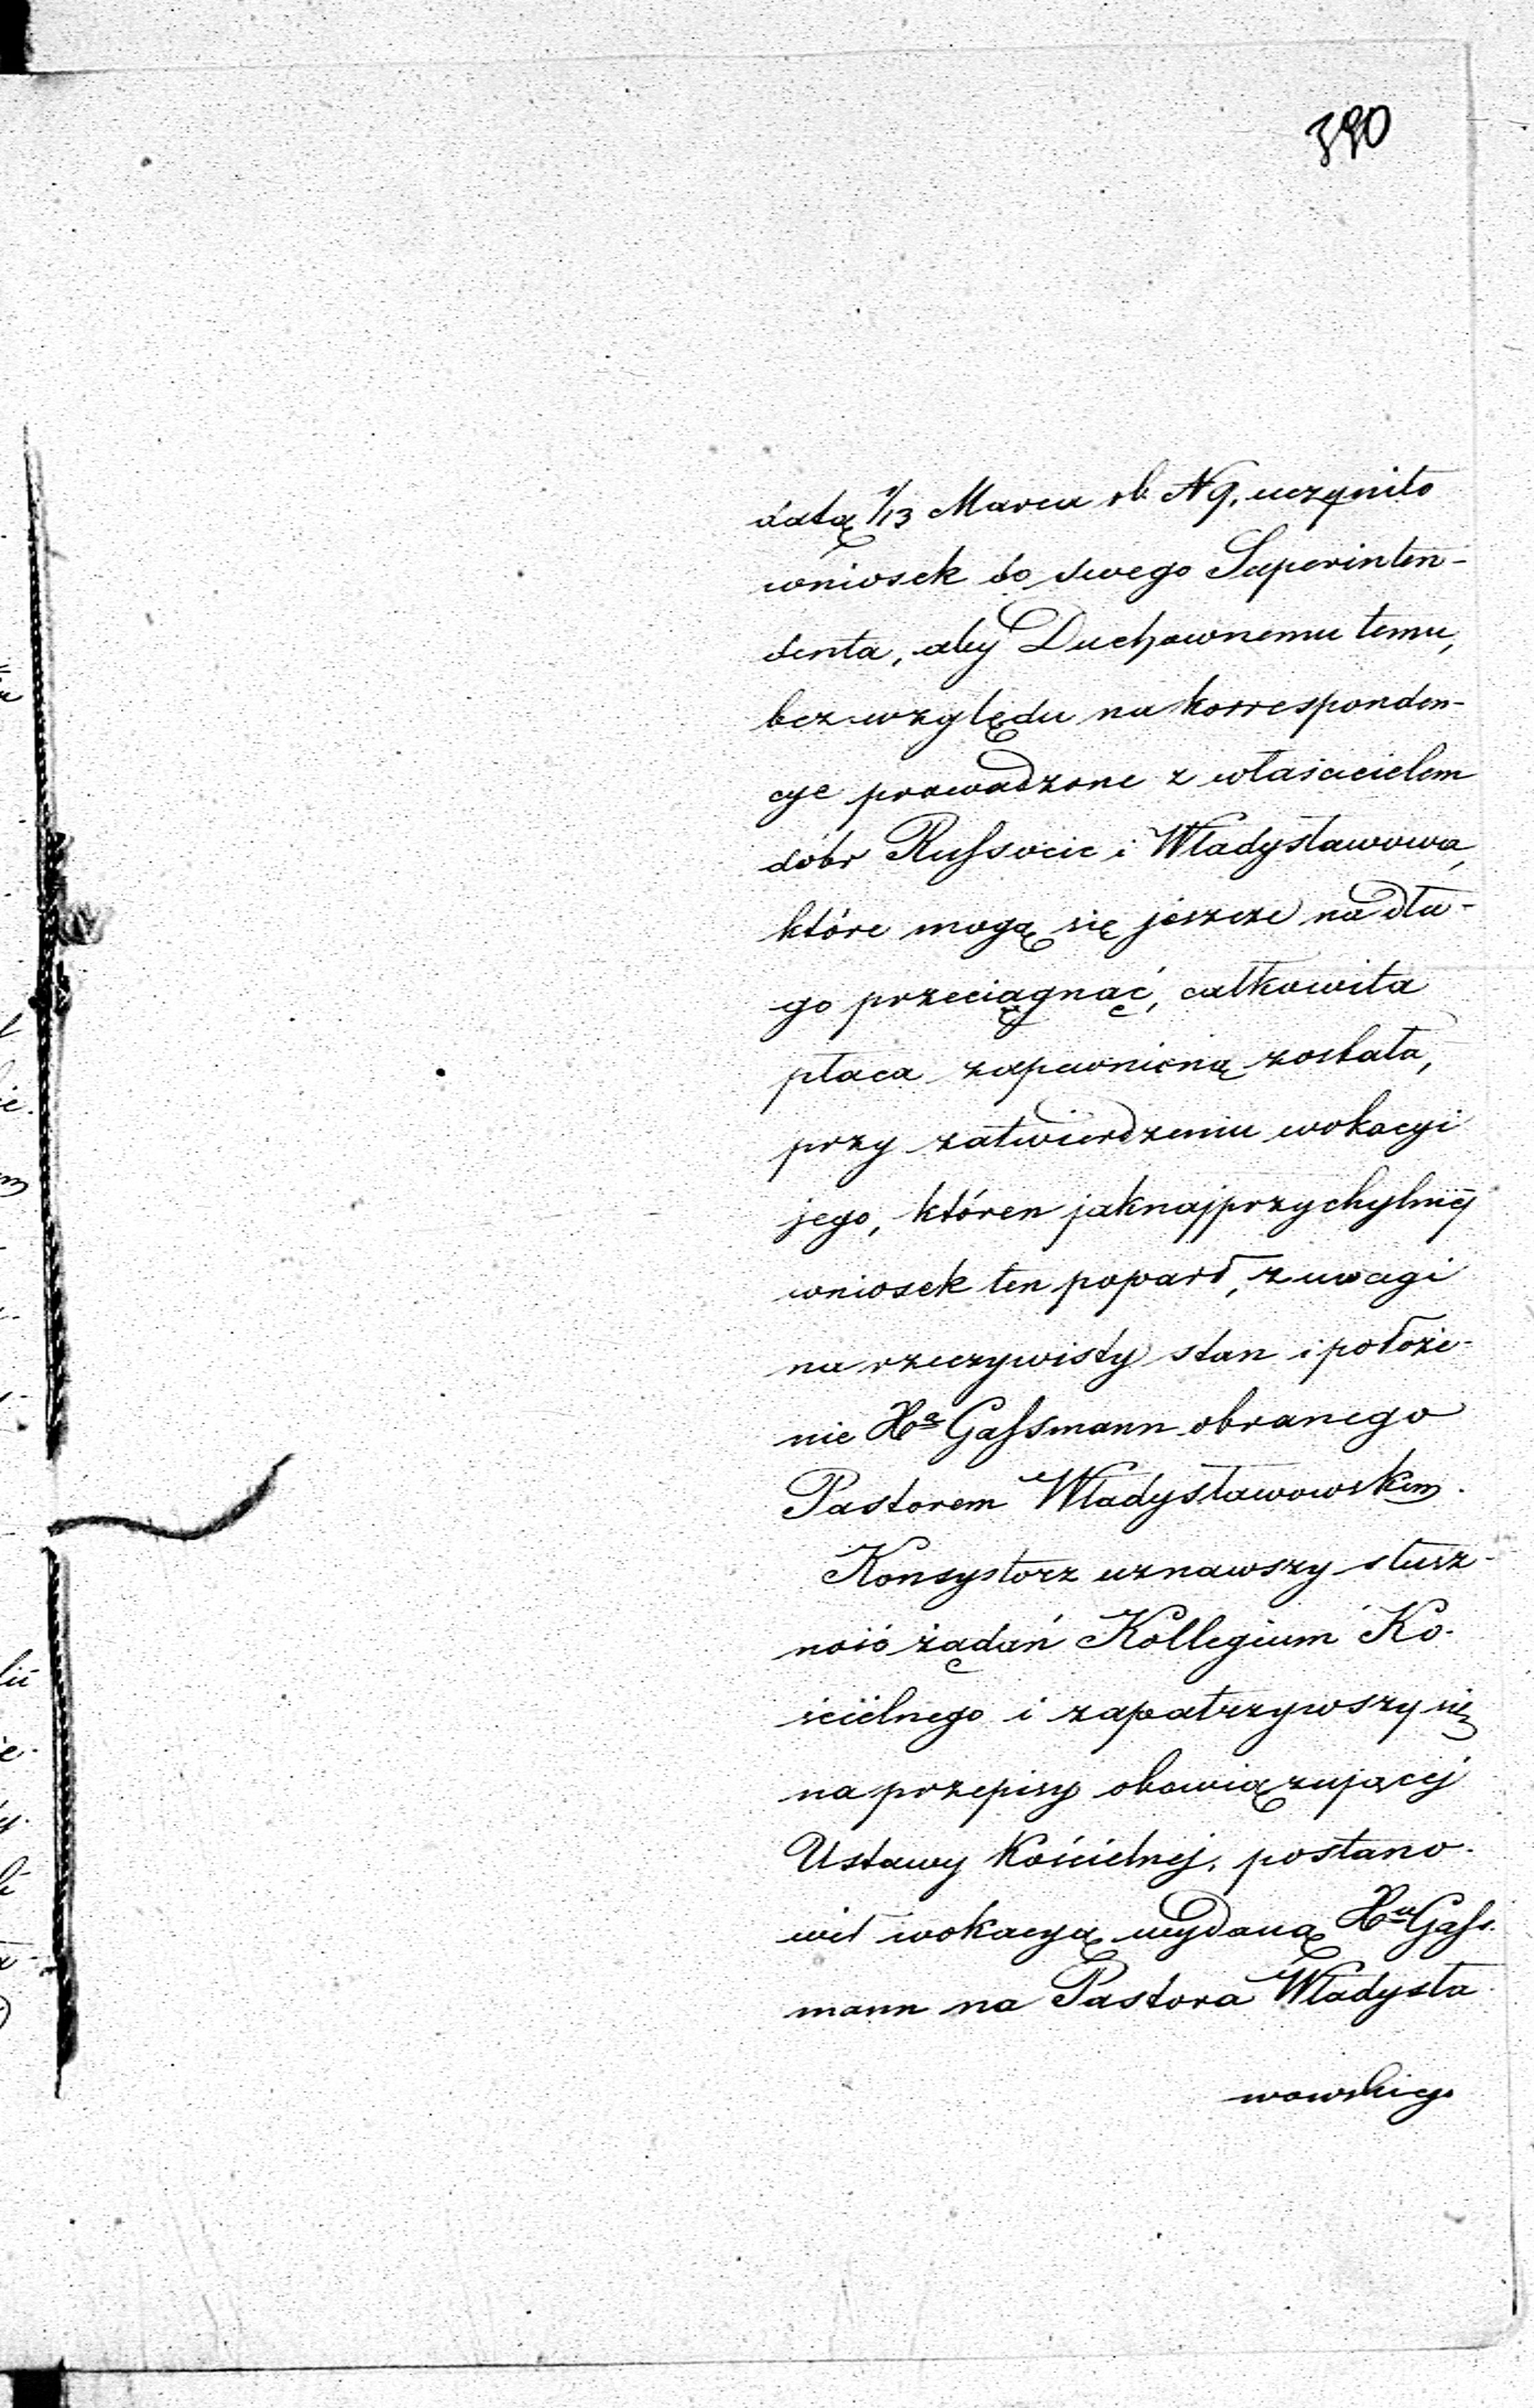 390
datą 1/13 Marca rb. N 9, uczyniło
wniosek do swego Superinten-
denta, aby Duchownemu temu,
bez względu na korresponden-
cye prowadzone z właścicielem
dóbr Russocic i Władysławowa,
które mogą się jeszcze na dłu-
go przeciągnąć, całkowita
płaca zapewnioną została,
przy zatwierdzeniu wokacyi
jego, któren jaknajprzychylniej
wniosek ten poparł, z uwagi
na rzeczywisty stan i położe-
nie Xa Gassmann obranego
Pastorem Władysławowskim.
Konsystorz uznawszy słusz-
ność żądań Kollegium Ko-
ścielnego i zapatrzywszy się
na przepisy obowiązującej
Ustawy Kościelnej, postano-
wił wokacyą wydaną Xu Gass-
mann na Pastora Władysła-
wowskiego